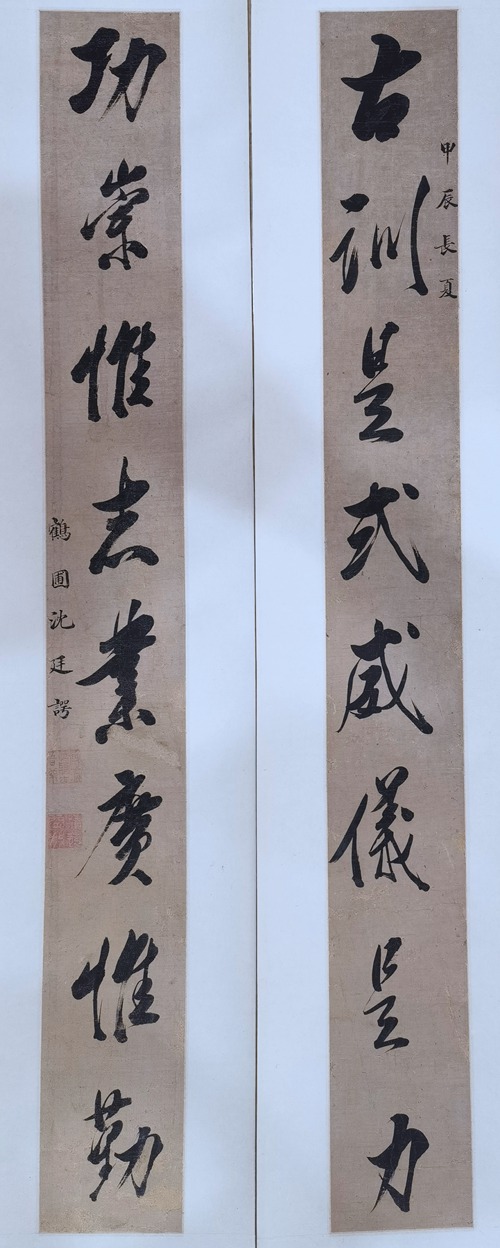 甲辰長夏
古訓是式威儀是力
功崇惟志業廣惟勤
鶴圃沈廷諤